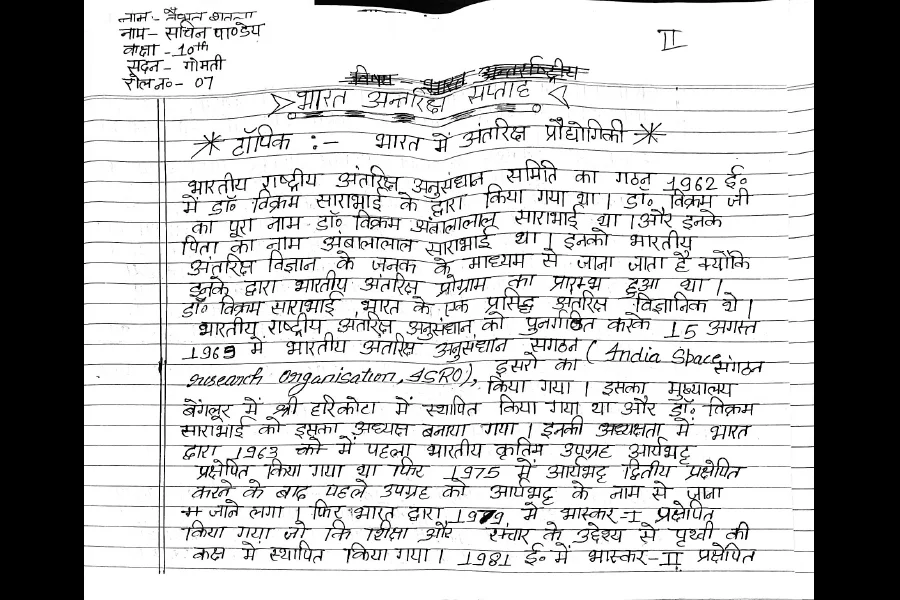 नाम:- त्रैशत शतला
नाप- सचिन पाण्डेय
कक्षा - 10th
सदन- गोमती
रोल न०- 07
II
भारत अन्तरिक्ष सप्ताह
* टॉपिक :- भारत में अंतरिक्ष प्रौद्योगिकी *
भारतीय राष्ट्रीय अंतरिक्ष अनुसंधान समिति का गठन 1962 ई०
में डॉ० विक्रम साराभाई के द्वारा किया गया था। डॉ० विक्रम जी
का पुरा नाम डॉ० विक्रम अंबालालाल साराभाई था। और इनके
पिता का नाम अंबालालाल साराभाई था। इनको भारतीय
अंतरिक्ष विज्ञान के जनक के माध्यम से जाना जाता है क्योंकि
इनके द्वारा भारतीय अंतरिक्ष प्रोग्राम का प्रारम्भ हुआ था।
डॉ० विक्रम साराभाई भारत के एक प्रसिद्ध अंतरिक्ष विज्ञानिक थे।
भारतीय राष्ट्रीय अंतरिक्ष अनुसंधान को पुनगठित करके 15 अगस्त
1969 में भारतीय अंतरिक्ष अनुसंधान संगठन (India Space
research organisation, ISRO), इसरो का संगठन
किया गया। इसका मुख्यालय
बेंगलूर में श्री हरिकोटा में स्थापित किया गया था और डॉ० विक्रम
साराभाई को इसका अध्यक्ष बनाया गया। इनकी अध्यक्षता में भारत
द्वारा 1963 को में पहला भारतीय कृतिम उपग्रह आर्यभट्ट
प्रक्षेपित किया गया था फिर 1975 में आर्यभट्ट द्वितीय प्रक्षेपित
करने के बाद पहले उपग्रह को आर्यभट्ट के नाम से जाना
जाने लगा। फिर भारत द्वारा 1979 में भास्कर-I प्रक्षेपित
किया गया जो कि शिक्षा और संचार के उद्देश्य से पृथ्वी की
कक्ष में स्थापित किया गया। 1981 ई० में भास्कर-II प्रक्षेपित